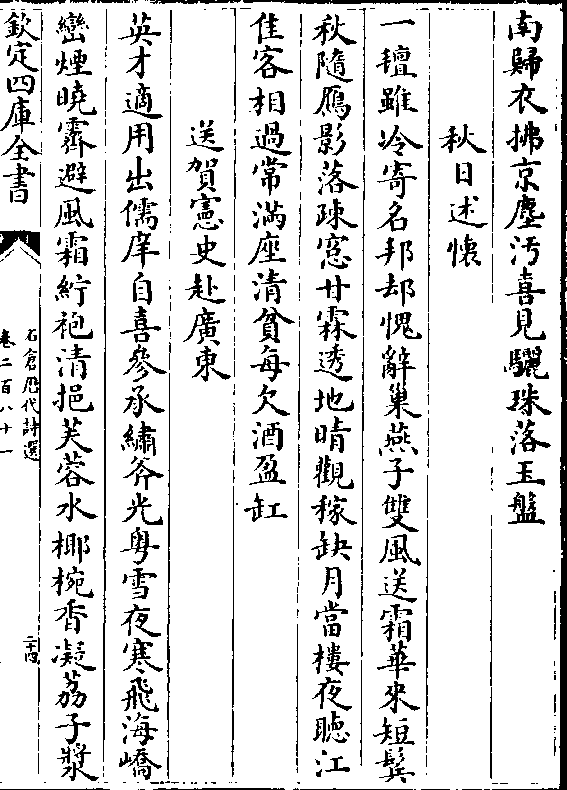 南歸衣拂京塵汚喜見驪珠落玉盤
秋日述懐
一氊雖冷寄名邦却愧辭巢燕子雙風送霜華來短鬂
秋隨鴈影落疎窓甘霖透地晴觀稼缺月當樓夜聽江
佳客相過常滿座清貧每欠酒盈缸
送賀憲史赴廣東
英才適用出儒庠自喜參承繡斧光粤雪夜寒飛海嶠
巒煙曉霽避風霜紵袍清挹芙蓉水椰椀香凝荔子漿
欽定四庫全書
石倉歴代詩選
卷二百八十一
二十四